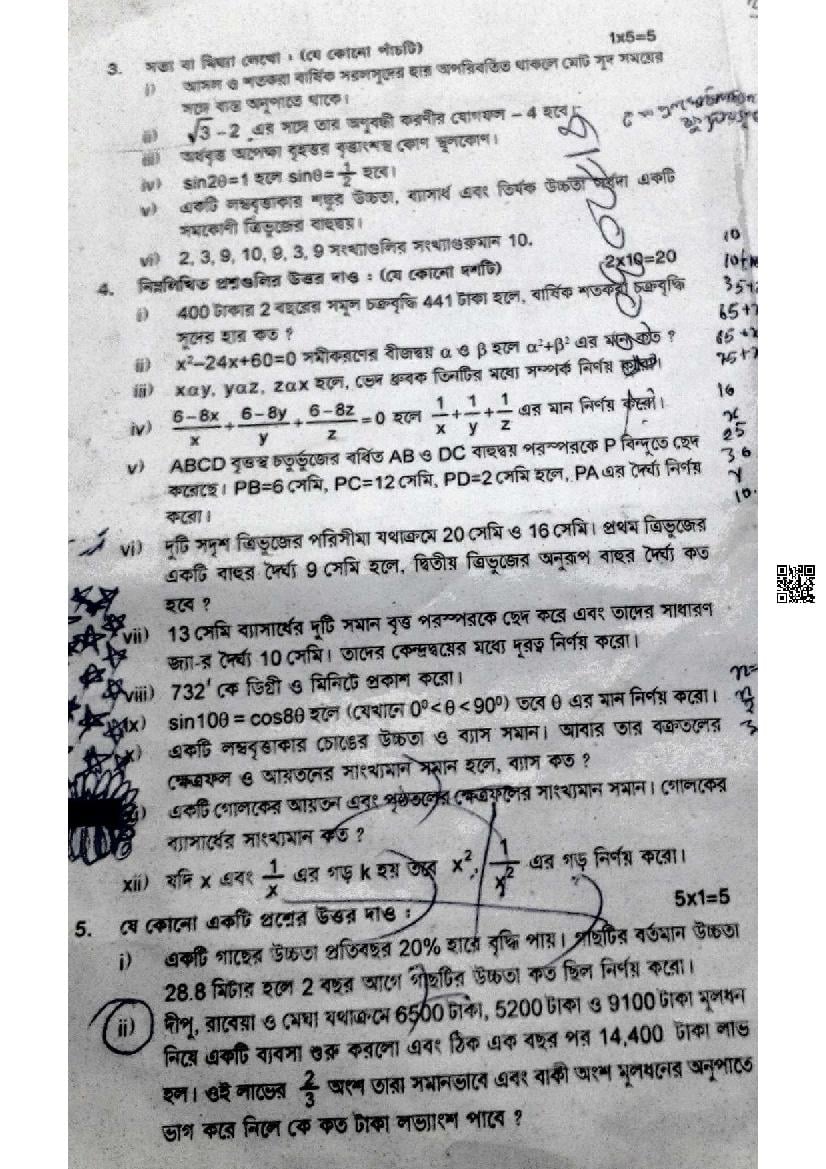 1x5=5
3. সত্য বা মিথ্যা লেখো : (যে কোনো পাঁচটি)
i) আসল ও শতকরা বার্ষিক সরলসুদের হার অপরিবর্তিত থাকলে মোট সুদ সময়ের
সঙ্গে ব্যস্ত অনুপাতে থাকে।
ii) √3 – 2 এর সঙ্গে তার অনুবন্ধী করণীর যোগফল – 4 হবে।
iii) অর্ধবৃত্ত অপেক্ষা বৃহত্তর বৃত্তাংশস্থ কোণ স্থূলকোণ।
iv) sin2θ=1 হলে sinθ= 1/2 হবে।
v) একটি লম্ববৃত্তাকার শঙ্কুর উচ্চতা, ব্যাসার্ধ এবং তির্যক উচ্চতা সর্বদা একটি
সমকোণী ত্রিভুজের বাহুত্রয়।
vi) 2, 3, 9, 10, 9, 3, 9 সংখ্যাগুলির সংখ্যাগুরুমান 10.
4. নিম্নলিখিত প্রশ্নগুলির উত্তর দাও : (যে কোনো দশটি) 2x10=20
i) 400 টাকার 2 বছরের সমূল চক্রবৃদ্ধি 441 টাকা হলে, বার্ষিক শতকরা চক্রবৃদ্ধি
সুদের হার কত ?
ii) x²–24x+60=0 সমীকরণের বীজদ্বয় α ও β হলে α²+β² এর মান কত ?
iii) xαy, yαz, zαx হলে, ভেদ ধ্রুবক তিনটির মধ্যে সম্পর্ক নির্ণয় করো।
iv) (6–8x)/x + (6–8y)/y + (6–8z)/z =0 হলে 1/x + 1/y + 1/z এর মান নির্ণয় করো।
v) ABCD বৃত্তস্থ চতুর্ভুজের বর্ধিত AB ও DC বাহুদ্বয় পরস্পরকে P বিন্দুতে ছেদ
করেছে। PB=6 সেমি, PC=12 সেমি, PD=2 সেমি হলে, PA এর দৈর্ঘ্য নির্ণয়
করো।
vi) দুটি সদৃশ ত্রিভুজের পরিসীমা যথাক্রমে 20 সেমি ও 16 সেমি। প্রথম ত্রিভুজের
একটি বাহুর দৈর্ঘ্য 9 সেমি হলে, দ্বিতীয় ত্রিভুজের অনুরূপ বাহুর দৈর্ঘ্য কত
হবে ?
vii) 13 সেমি ব্যাসার্ধের দুটি সমান বৃত্ত পরস্পরকে ছেদ করে এবং তাদের সাধারণ
জ্যা-র দৈর্ঘ্য 10 সেমি। তাদের কেন্দ্রদ্বয়ের মধ্যে দূরত্ব নির্ণয় করো।
viii) 732′ কে ডিগ্রী ও মিনিটে প্রকাশ করো।
ix) sin10θ = cos8θ হলে (যেখানে 0⁰<θ<90⁰) তবে θ এর মান নির্ণয় করো।
x) একটি লম্ববৃত্তাকার চোঙের উচ্চতা ও ব্যাস সমান। আবার তার বক্রতলের
ক্ষেত্রফল ও আয়তনের সাংখ্যমান সমান হলে, ব্যাস কত ?
একটি গোলকের আয়তন এবং পৃষ্ঠতলের ক্ষেত্রফলের সাংখ্যমান সমান। গোলকের
ব্যাসার্ধের সাংখ্যমান কত ?
xii) যদি x এবং 1/x এর গড় k হয় তবে x², 1/x² এর গড় নির্ণয় করো।
5. যে কোনো একটি প্রশ্নের উত্তর দাও : 5x1=5
i) একটি গাছের উচ্চতা প্রতিবছর 20% হারে বৃদ্ধি পায়। গাছটির বর্তমান উচ্চতা
28.8 মিটার হলে 2 বছর আগে গাছটির উচ্চতা কত ছিল নির্ণয় করো।
ii) দীপু, রাবেয়া ও মেঘা যথাক্রমে 6500 টাকা, 5200 টাকা ও 9100 টাকা মূলধন
নিয়ে একটি ব্যবসা শুরু করলো এবং ঠিক এক বছর পর 14,400 টাকা লাভ
হল। ওই লাভের 2/3 অংশ তারা সমানভাবে এবং বাকী অংশ মূলধনের অনুপাতে
ভাগ করে নিলে কে কত টাকা লভ্যাংশ পাবে ?